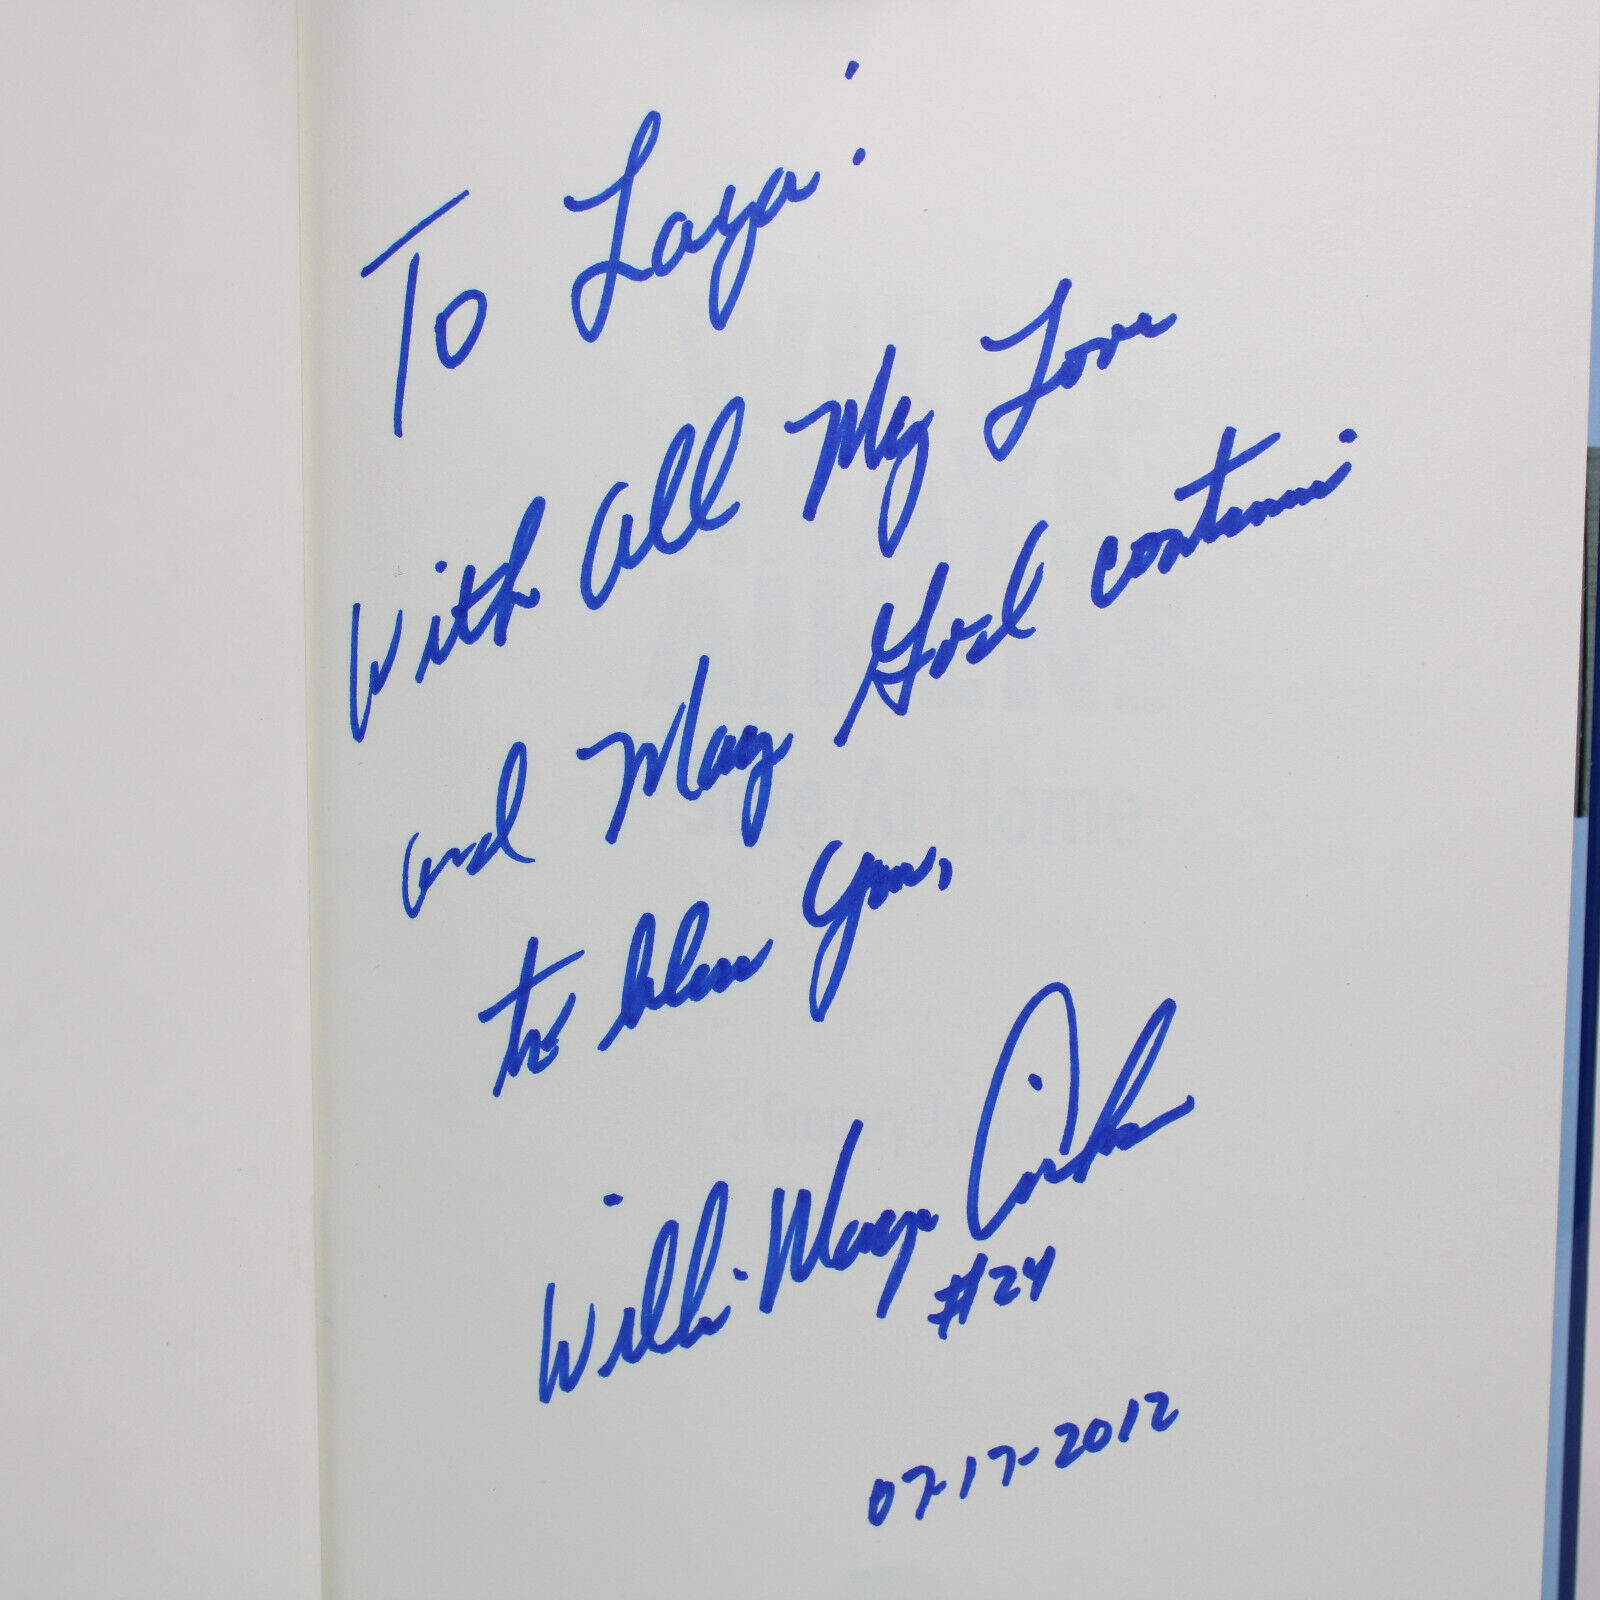 To Laya:
With All My Love
and May God continue
to bless you,
Willie Mays Aikens
#24
07-17-2012